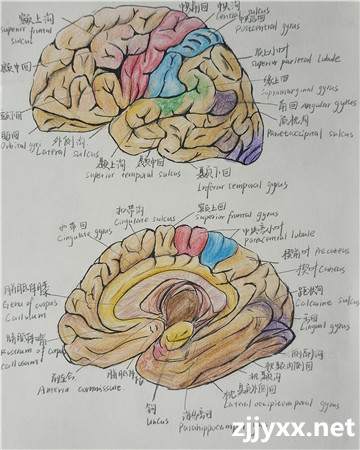 中央沟
Central sulcus
Postcentral gyrus
额上沟
superior frontal
sulcus
顶上小叶
superior parietal lobule
额中回
缘上回
Supramarginal gyrus
角回 angular gyrus
额下回
顶枕沟
Parietaccipital sulcus
Orbital gyrus
外侧沟
Lateral sulcus
颞上沟
颞中回
颞下回
Superior temporal sulcus
Inferior temporal gyrus
扣带沟
额上回
Cingulate sulcus
Superior frontal gyrus
扣带回
中央旁小叶
Cingulate gyrus
Paracentral lobule
楔前叶 Precuneus
楔叶 Cuneus
胼胝体膝
Genu of corpus
Callosum
距状沟
Calcarine sulcus
舌回
Lingual gyrus
胼胝体嘴
Rostrum of corpus
callosum
侧副沟
枕颞内侧回
前连合
枕颞沟
Anteria commissure
枕颞外侧回
钩
海马旁回
Lateral occipitotemporal gyrus
Uncus
Parahippocampal gyrus
zjjyxx.net